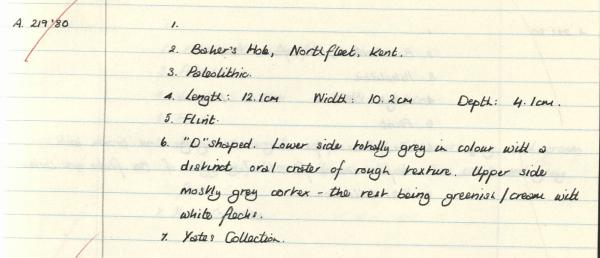 A. 219'80
1.
2. Baker's Hole, Northfleet, Kent.
3. Paleolithic.
4. Length: 12.1cm Width: 10.2cm Depth: 4.1cm.
5. Flint.
6. "D" shaped. Lower side totally grey in colour with a
distinct oral crater of rough texture. Upper side
mostly grey cortex - the rest being greenish/cream with
white flecks.
7. Yates Collection.